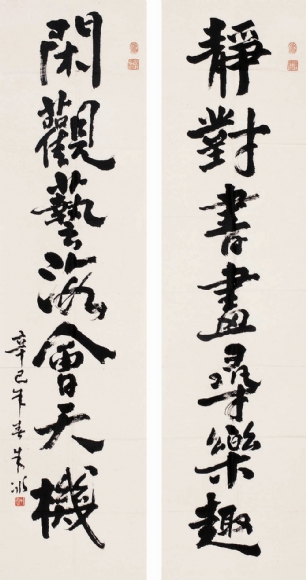 靜對書畫尋樂趣
閑觀藝海會天機
辛巳年春朱冰